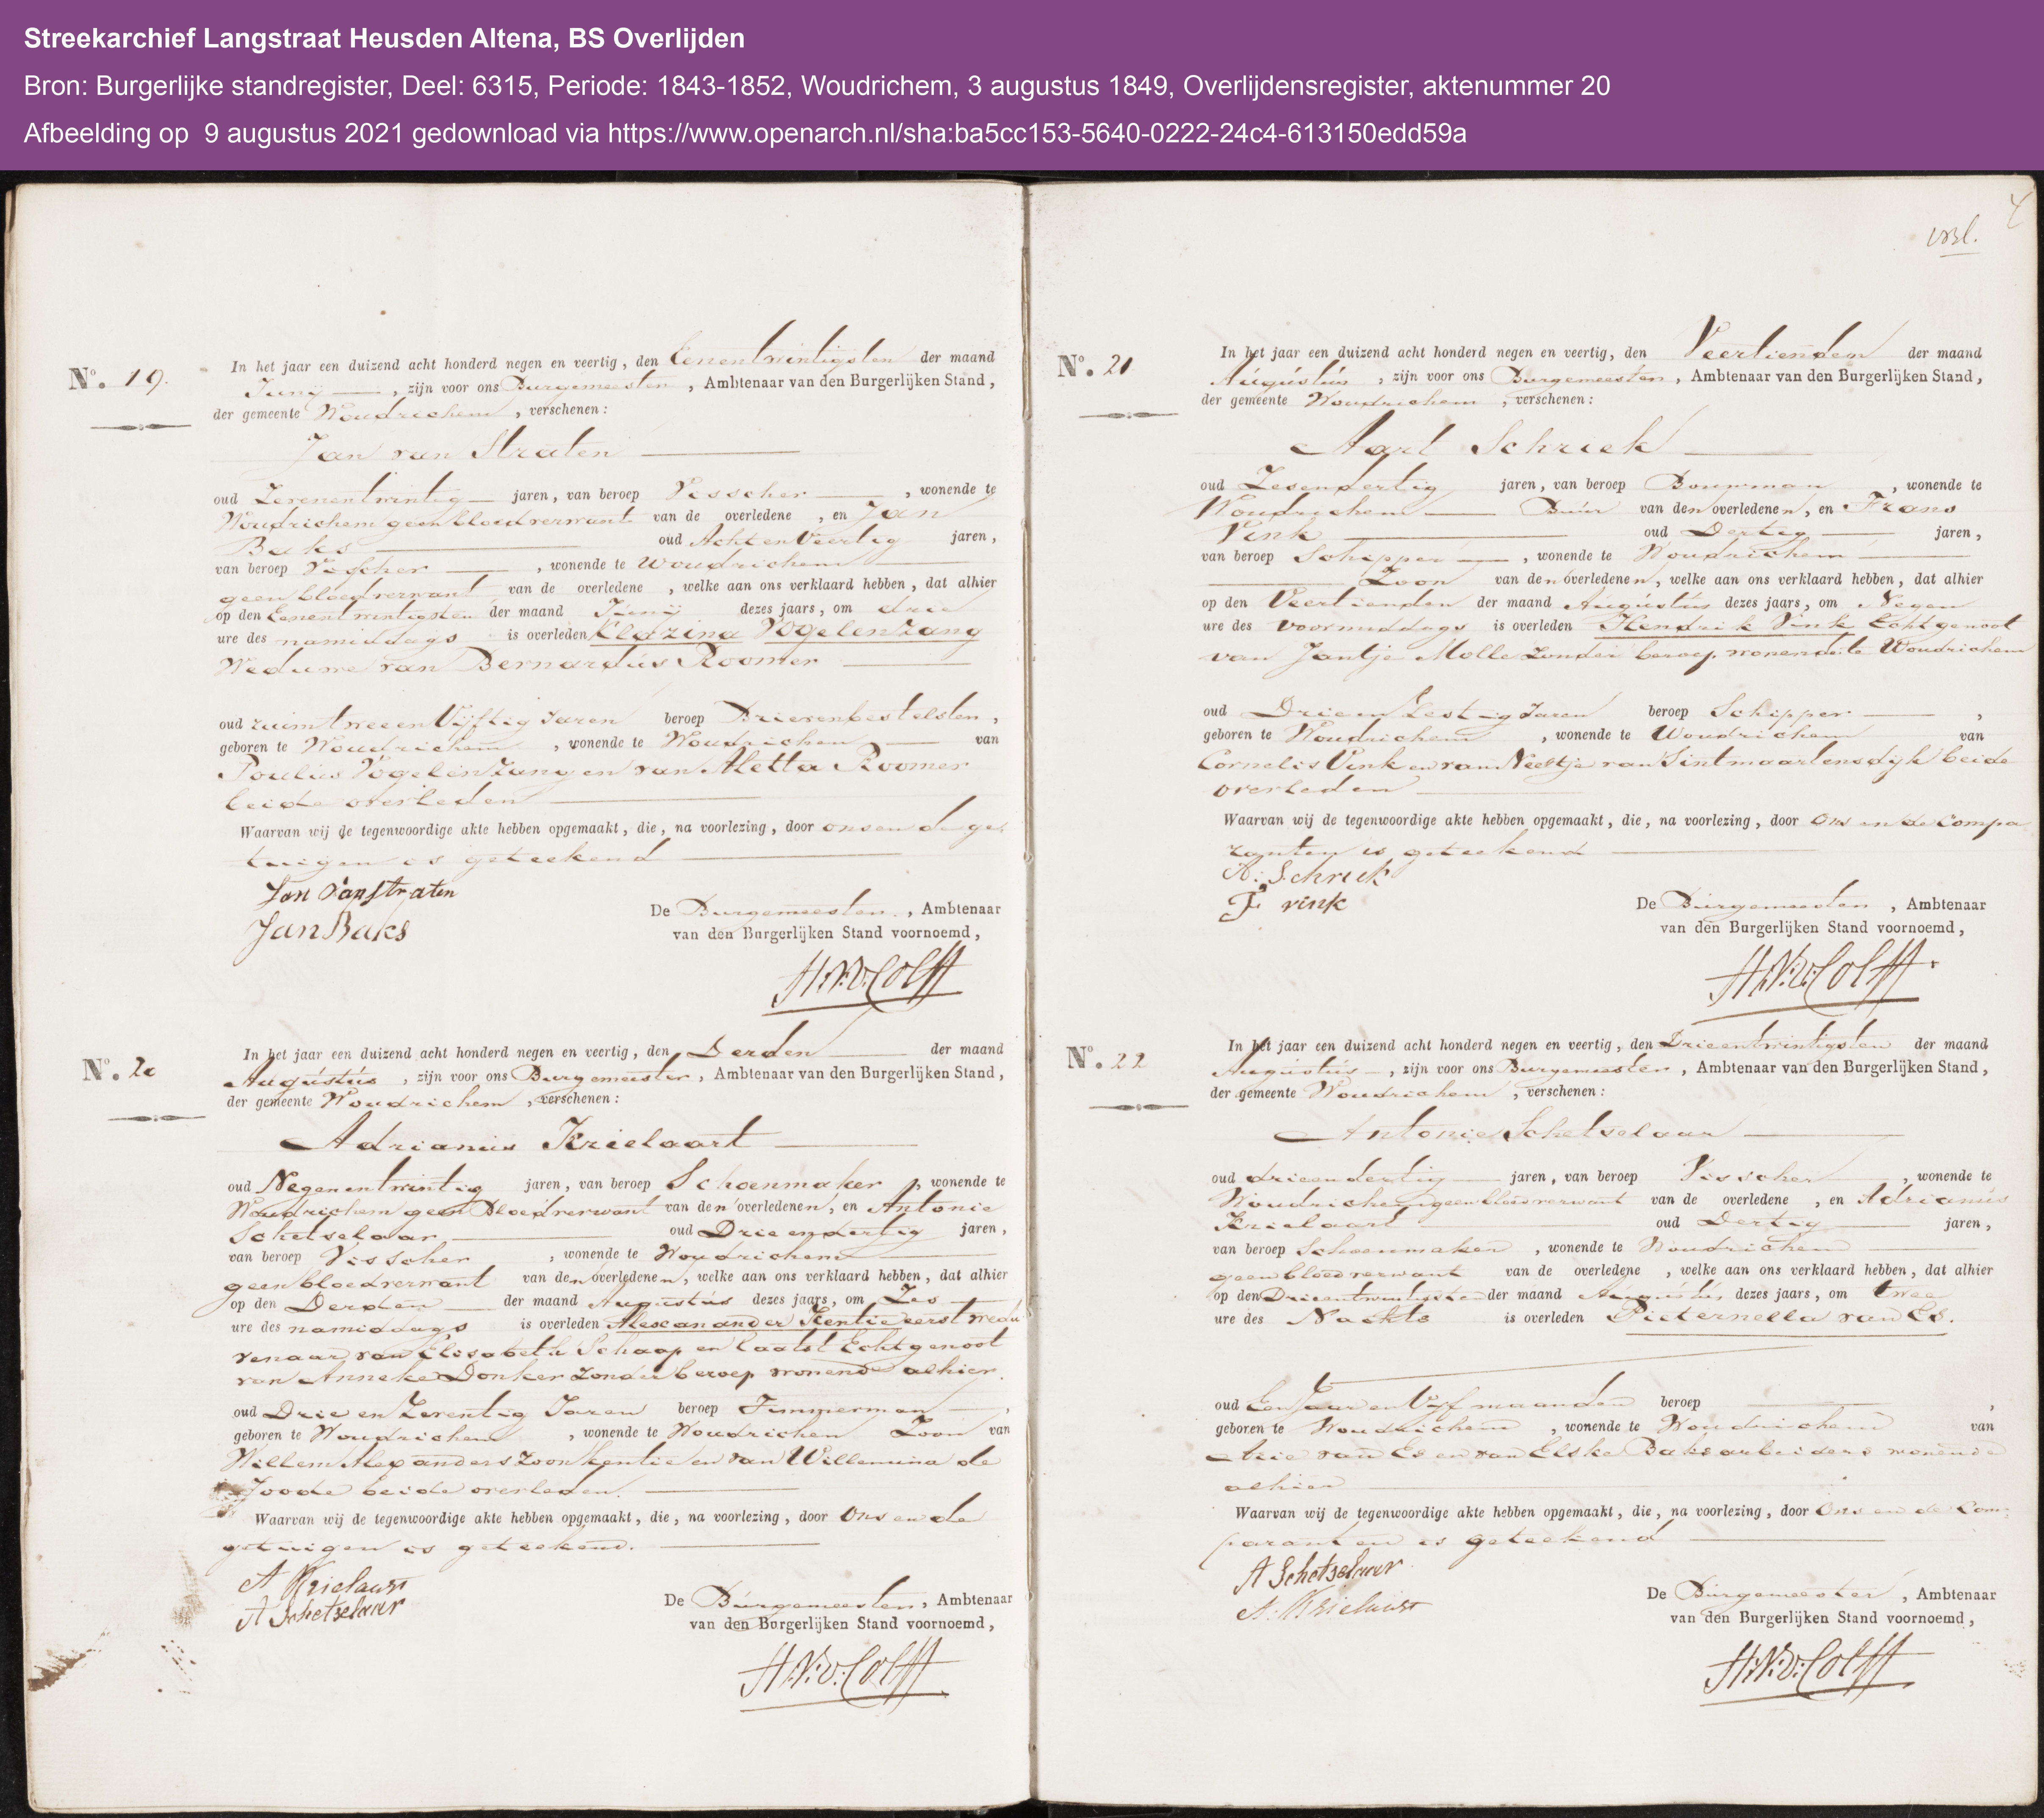 Streekarchief Langstraat Heusden Altena, BS Overlijden
Bron: Burgerlijke standregister, Deel: 6315, Periode: 1843-1852, Woudrichem, 3 augustus 1849, Overlijdensregister, aktenummer 20
Afbeelding op 9 augustus 2021 gedownload via https://www.openarch.nl/sha:ba5cc153-5640-0222-24c4-613150edd59a
No. 19.
In het jaar een duizend acht honderd negen en veertig, den Eenentwintigsten der maand
Junij —, zijn voor ons Burgemeester, Ambtenaar van den Burgerlijken Stand,
der gemeente Woudrichem, verschenen:
Jan van Straten
oud Zevenentwintig jaren, van beroep Visscher, wonende te
Woudrichem geen bloedverwant van de overledene, en Jan
Baks oud Acht en Veertig jaren,
van beroep Visscher, wonende te Woudrichem
geen bloedverwant van de overledene, welke aan ons verklaard hebben, dat alhier
op den Eenentwintigsten der maand Junij dezes jaars, om drie
ure des namiddags is overleden Klazina Vogelenzang
Weduwe van Bernardus Roomer
oud ruim twee en Vijftig Jaren beroep Brievenbestelster,
geboren te Woudrichem, wonende te Woudrichem van
Poulus Vogelenzang en van Aletta Roomer
beide overleden
Waarvan wij de tegenwoordige akte hebben opgemaakt, die, na voorlezing, door ons en de ge
tuigen is geteekend
Jan Van Straten
Jan Baks
De Burgemeester, Ambtenaar
van den Burgerlijken Stand voornoemd,
H.N.v.Colff
No. 20
In het jaar een duizend acht honderd negen en veertig, den Derden der maand
Augustus, zijn voor ons Burgemeester, Ambtenaar van den Burgerlijken Stand,
der gemeente Woudrichem, verschenen:
Adrianus Krielaart
oud Negenentwintig jaren, van beroep Schoenmaker, wonende te
Woudrichem geen Bloedverwant van den overledenen, en Antonie
Schetselaar oud Drieendertig jaren,
van beroep Visscher, wonende te Woudrichem
geen bloedverwant van den overledenen, welke aan ons verklaard hebben, dat alhier
op den Derden der maand Augustus dezes jaars, om Zes
ure des namiddags is overleden Alexanander Kentie eerst wedu
wenaar van Elisabeth Schaap en laatst Echtgenoot
van Anneke Donker zonder beroep wonende alhier.
oud Drie en Zeventig Jaren beroep Timmerman,
geboren te Woudrichem, wonende te Woudrichem Zoon van
Willem Alexanders zoon Kentie en van Willemina de
Joode beide overleden.
Waarvan wij de tegenwoordige akte hebben opgemaakt, die, na voorlezing, door Ons en de
getuigen is geteekend.
A Krielaart
A Schetselaar
De Burgemeester, Ambtenaar
van den Burgerlijken Stand voornoemd,
H.N.v.Colff
No. 21
In het jaar een duizend acht honderd negen en veertig, den Veertienden der maand
Augustus, zijn voor ons Burgemeester, Ambtenaar van den Burgerlijken Stand,
der gemeente Woudrichem, verschenen:
Aart Schriek
oud Zesendertig jaren, van beroep Bouwman, wonende te
Woudrichem Buur van den overledenen, en Frans
Vink oud Dertig jaren,
van beroep Schipper, wonende te Woudrichem
Zoon van den overledenen, welke aan ons verklaard hebben, dat alhier
op den Veertienden der maand Augustus dezes jaars, om Negen
ure des voormiddags is overleden Hendrik Vink Echtgenoot
van Jantje Molle zonder beroep wonende te Woudrichem
oud Drie en Zestig Jaren beroep Schipper,
geboren te Woudrichem, wonende te Woudrichem van
Cornelis Vink en van Neeltje van Sintmaartensdijk beide
overleden
Waarvan wij de tegenwoordige akte hebben opgemaakt, die, na voorlezing, door Ons en de Compa
ranten is geteekend
A: Schriek
F vink
De Burgemeester, Ambtenaar
van den Burgerlijken Stand voornoemd,
H.N.v.Colff
No. 22
In het jaar een duizend acht honderd negen en veertig, den Drieentwintigsten der maand
Augustus, zijn voor ons Burgemeester, Ambtenaar van den Burgerlijken Stand,
der gemeente Woudrichem, verschenen:
Antonie Schetselaar
oud drieendertig jaren, van beroep Visscher, wonende te
Woudrichem geen bloedverwant van de overledene, en Adrianus
Krielaart oud Dertig jaren,
van beroep Schoenmaker, wonende te Woudrichem
geen bloedverwant van de overledene, welke aan ons verklaard hebben, dat alhier
op den Drieentwintigsten der maand Augustus dezes jaars, om twee
ure des Nachts is overleden Pieternella van Es.
oud Een Jaar en Vijf maanden beroep ,
geboren te Woudrichem, wonende te Woudrichem van
Arie van Es en van Elske Baks arbeiders wonende
alhier
Waarvan wij de tegenwoordige akte hebben opgemaakt, die, na voorlezing, door Ons en de Com:
paranten is geteekend
A Schetselaar
A: Krielaart
De Burgemeester, Ambtenaar
van den Burgerlijken Stand voornoemd,
H.N.v.Colff